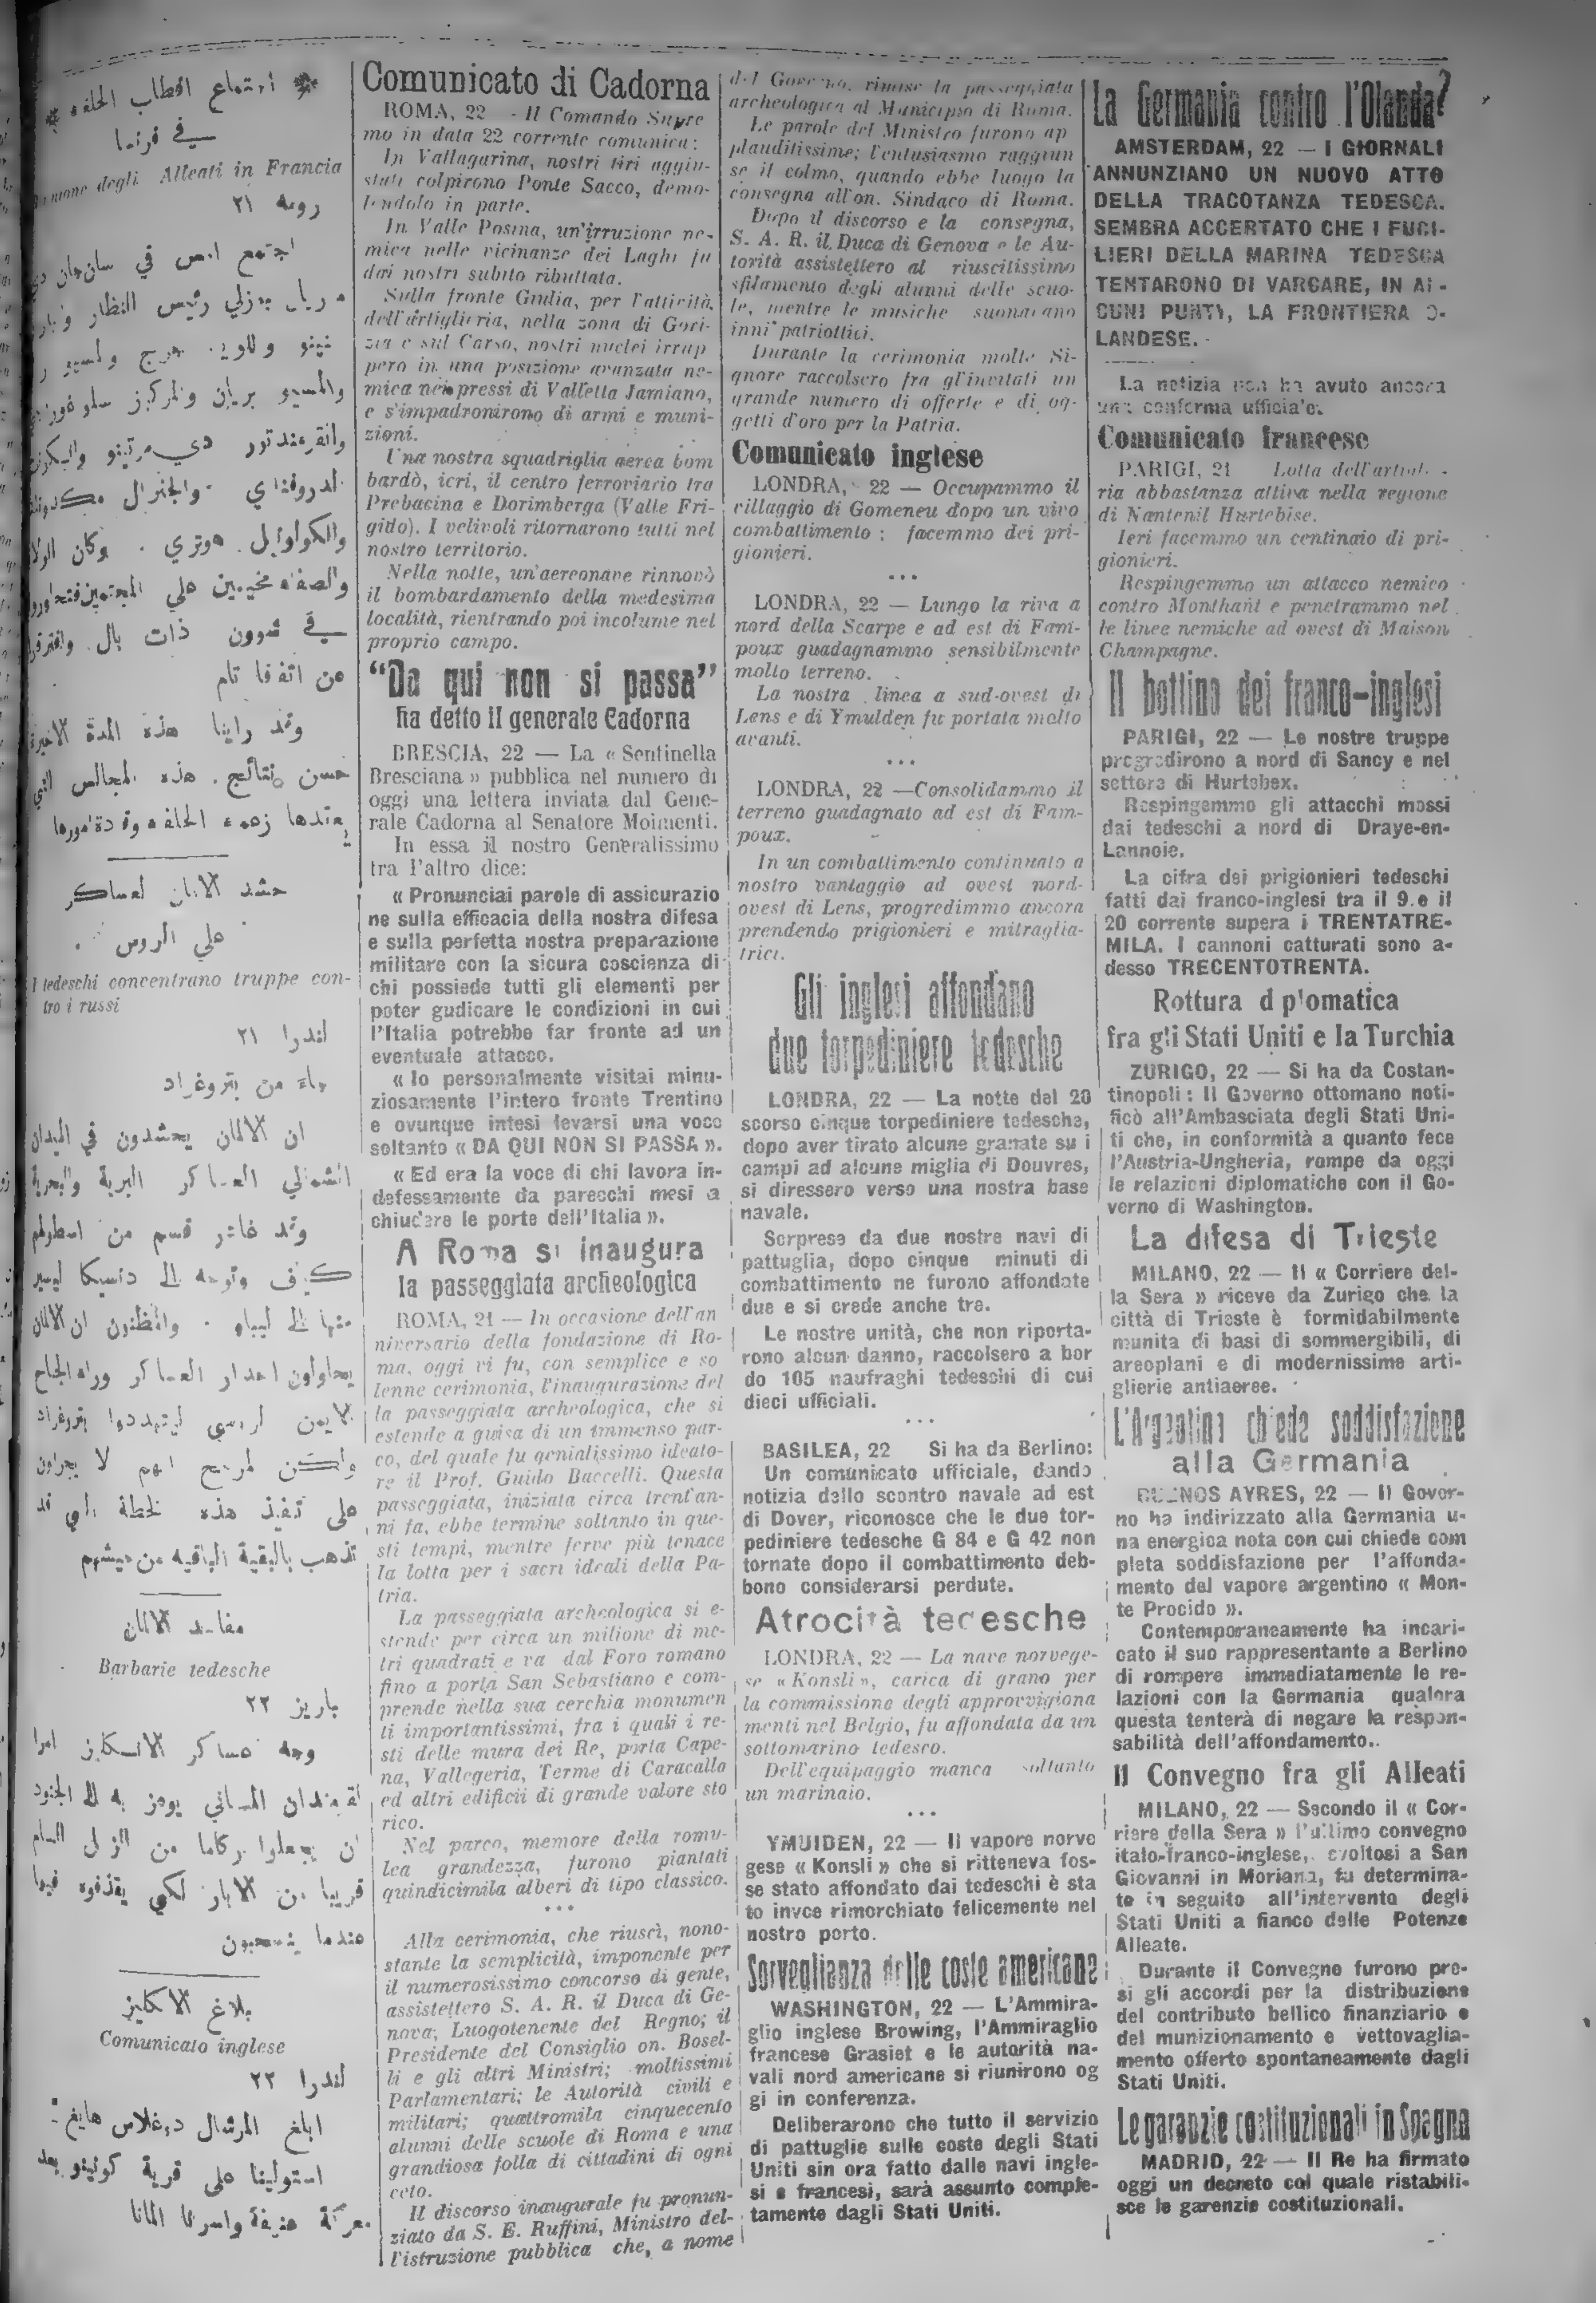 اجتماع اقطاب الحلفاء
في فرنسا
degli Alleati in Francia
رومه ٢١
اجتمع امس في
رئيس النظار
والمسيو بريان
في شؤون ذات بال
عن اتفاق تام
وقد راينا هذه المدة الاخيرة
حسن نتائج هذه المجالس التي
يعقدها زعماء الحلفاء وقادة امورها
حشد الالمان لعساكر
على الروس
I tedeschi concentrano truppe con-
tro i russi
لندرا ٢١
جاء من بتروغراد
ان الالمان يحشدون في الميدان
الشمالي العساكر البرية والبحرية
وقد غادر قسم من اسطولهم
على تنفيذ هذه الخطة التي قد
تذهب بالبقية الباقيه من جيشهم
Barbarie tedesche
باريز ٢٢
عندما ينسحبون
بلاغ الانكليز
Comunicato inglese
لندرا ٢٢
ابلغ المرشال دوغلاس هايغ :
استولينا على قرية كونيو بعد
معركة عنيفة واسرنا المانا
Comunicato di Cadorna
ROMA, 22 - Il Comando Supre
mo in data 22 corrente comunica:
In Vallagarina, nostri tiri aggiu-
stati colpirono Ponte Sacco, demo-
lendolo in parte.
In Valle Posina, un'irruzione ne-
mica nelle vicinanze dei Laghi fu
dai nostri subito ributtata.
Sulla fronte Giulia, per l'attività
dell'artiglieria, nella zona di Gori-
zia e sul Carso, nostri nuclei irrup
pero in una posizione avanzata ne-
mica nei pressi di Valletta Jamiano,
e s'impadronirono di armi e muni-
zioni.
Una nostra squadriglia aerea bom
bardò, ieri, il centro ferroviario tra
Prebacina e Dorimberga (Valle Fri-
gido). I velivoli ritornarono tutti nel
nostro territorio.
Nella notte, un'aereonave rinnovò
il bombardamento della medesima
località, rientrando poi incolume nel
proprio campo.
“Da qui non si passa”
ha detto Il generale Cadorna
BRESCIA, 22 — La « Sentinella
Bresciana » pubblica nel numero di
oggi una lettera inviata dal Gene-
rale Cadorna al Senatore Moimenti.
In essa il nostro Generalissimo
tra l'altro dice:
« Pronunciai parole di assicurazio
ne sulla efficacia della nostra difesa
e sulla perfetta nostra preparazione
militare con la sicura coscienza di
chi possiede tutti gli elementi per
poter gudicare le condizioni in cui
l'Italia potrebbe far fronte ad un
eventuale attacco.
« Io personalmente visitai minu-
ziosamente l'intero fronte Trentino
e ovunque intesi levarsi una voce
soltanto « DA QUI NON SI PASSA ».
« Ed era la voce di chi lavora in-
defessamente da parecchi mesi a
chiudere le porte dell'Italia ».
A Roma si inaugura
la passeggiata archeologica
ROMA, 21 — In occasione dell'an
niversario della fondazione di Ro-
ma, oggi vi fu, con semplice e so
lenne cerimonia, l'inaugurazione del
la passeggiata archeologica, che si
estende a guisa di un immenso par-
co, del quale fu genialissimo ideato-
re il Prof. Guido Baccelli. Questa
passeggiata, iniziata circa trent'an-
ni fa, ebbe termine soltanto in que-
sti tempi, mentre ferve più tenace
la lotta per i sacri ideali della Pa-
tria.
La passeggiata archeologica si e-
stende per circa un milione di me-
tri quadrati e va dal Foro romano
fino a porta San Sebastiano e com-
prende nella sua cerchia monumen
ti importantissimi, fra i quali i re-
sti delle mura dei Re, porta Cape-
na, Vallegeria, Terme di Caracalla
ed altri edificii di grande valore sto
rico.
Nel parco, memore della romu-
lea grandezza, furono piantati
quindicimila alberi di tipo classico.
• • •
Alla cerimonia, che riuscì, nono-
stante la semplicità, imponente per
il numerosissimo concorso di gente,
assistettero S. A. R. il Duca di Ge-
nova, Luogotenente del Regno; il
Presidente del Consiglio on. Bosel-
li e gli altri Ministri; moltissimi
Parlamentari; le Autorità civili e
militari; quattromila cinquecento
alunni delle scuole di Roma e una
grandiosa folla di cittadini di ogni
ceto.
Il discorso inaugurale fu pronun-
ziato da S. E. Ruffini, Ministro del-
l'istruzione pubblica che, a nome
del Governo, rimise la passeggiata
archeologica al Municipio di Roma.
Le parole del Ministro furono ap
plauditissime; l'entusiasmo raggiun
se il colmo, quando ebbe luogo la
consegna all'on. Sindaco di Roma.
Dopo il discorso e la consegna,
S. A. R. il Duca di Genova e le Au-
torità assistettero al riuscitissimo
sfilamento degli alunni delle scuo-
le, mentre le musiche suonavano
inni patriottici.
Durante la cerimonia molte Si-
gnore raccolsero fra gl'invitati un
grande numero di offerte e di og-
getti d'oro per la Patria.
Comunicato inglese
LONDRA, 22 — Occupammo il
villaggio di Gomeneu dopo un vivo
combattimento ; facemmo dei pri-
gionieri.
• • •
LONDRA, 22 — Lungo la riva a
nord della Scarpe e ad est di Fam-
poux guadagnammo sensibilmente
molto terreno.
La nostra linea a sud-ovest di
Lens e di Ymulden fu portata molto
avanti.
• • •
LONDRA, 22 —Consolidammo il
terreno guadagnato ad est di Fam-
poux.
In un combattimento continuato a
nostro vantaggio ad ovest nord-
ovest di Lens, progredimmo ancora
prendendo prigionieri e mitraglia-
trici.
Gli inglesi affondano
due torpediniere tedesche
LONDRA, 22 — La notte del 20
scorso cinque torpediniere tedesche,
dopo aver tirato alcune granate su i
campi ad alcune miglia di Douvres,
si diressero verso una nostra base
navale.
Sorprese da due nostre navi di
pattuglia, dopo cinque minuti di
combattimento ne furono affondate
due e si crede anche tre.
Le nostre unità, che non riporta-
rono alcun danno, raccolsero a bor
do 105 naufraghi tedeschi di cui
dieci ufficiali.
• • •
BASILEA, 22 Si ha da Berlino:
Un comunicato ufficiale, dando
notizia dello scontro navale ad est
di Dover, riconosce che le due tor-
pediniere tedesche G 84 e G 42 non
tornate dopo il combattimento deb-
bono considerarsi perdute.
Atrocità tedesche
LONDRA, 22 — La nave norvege-
se « Konsli », carica di grano per
la commissione degli approvvigiona
menti nel Belgio, fu affondata da un
sottomarino tedesco.
Dell'equipaggio manca soltanto
un marinaio.
• • •
YMUIDEN, 22 — Il vapore norve
gese « Konsli » che si ritteneva fos-
se stato affondato dai tedeschi è sta
to invce rimorchiato felicemente nel
nostro porto.
Sorveglianza delle coste americane
WASHINGTON, 22 — L'Ammira-
glio inglese Browing, l'Ammiraglio
francese Grasiet e le autorità na-
vali nord americane si riunirono og
gi in conferenza.
Deliberarono che tutto il servizio
di pattuglie sulle coste degli Stati
Uniti sin ora fatto dalle navi ingle-
si e francesi, sarà assunto comple-
tamente dagli Stati Uniti.
La Germania contro l'Olanda?
AMSTERDAM, 22 — I GIORNALI
ANNUNZIANO UN NUOVO ATTO
DELLA TRACOTANZA TEDESCA.
SEMBRA ACCERTATO CHE I FUCI-
LIERI DELLA MARINA TEDESCA
TENTARONO DI VARCARE, IN Al-
CUNI PUNTI, LA FRONTIERA O-
LANDESE.
La notizia non ha avuto ancora
una conferma ufficiale.
Comunicato francese
PARIGI, 21 Lotta dell'artiglie-
ria abbastanza attiva nella regione
di Nantenil Hurtebise.
Ieri facemmo un centinaio di pri-
gionieri.
Respingemmo un attacco nemico
contro Monthant e penetrammo nel
le linee nemiche ad ovest di Maison
Champagne.
Il bottino dei franco-inglesi
PARIGI, 22 — Le nostre truppe
progredirono a nord di Sancy e nel
settore di Hurtebex.
Respingemmo gli attacchi mossi
dai tedeschi a nord di Draye-en-
Lannoie.
La cifra dei prigionieri tedeschi
fatti dai franco-inglesi tra il 9 e il
20 corrente supera i TRENTATRE-
MILA. I cannoni catturati sono a-
desso TRECENTOTRENTA.
Rottura d plomatica
fra gli Stati Uniti e la Turchia
ZURIGO, 22 — Si ha da Costan-
tinopoli: Il Governo ottomano noti-
ficò all'Ambasciata degli Stati Uni-
ti che, in conformità a quanto fece
l'Austria-Ungheria, rompe da oggi
le relazioni diplomatiche con il Go-
verno di Washington.
La difesa di Trieste
MILANO, 22 — Il « Corriere del-
la Sera » riceve da Zurigo che la
città di Trieste è formidabilmente
munita di basi di sommergibili, di
areoplani e di modernissime arti-
glierie antiaeree.
L'Argentina chiede soddisfazione
alla Germania
BUENOS AYRES, 22 — Il Gover-
no ha indirizzato alla Germania u-
na energica nota con cui chiede com
pleta soddisfazione per l'affonda-
mento del vapore argentino « Mon-
te Procido ».
Contemporaneamente ha incari-
cato il suo rappresentante a Berlino
di rompere immediatamente le re-
lazioni con la Germania qualora
questa tenterà di negare la respon-
sabilità dell'affondamento..
Il Convegno fra gli Alleati
MILANO, 22 — Secondo il « Cor-
riere della Sera » l'ultimo convegno
italo-franco-inglese, svoltosi a San
Giovanni in Moriana, fu determina-
to in seguito all'intervento degli
Stati Uniti a fianco delle Potenze
Alleate.
Durante il Convegno furono pre-
si gli accordi per la distribuzione
del contributo bellico finanziario e
del munizionamento e vettovaglia-
mento offerto spontaneamente dagli
Stati Uniti.
Le garanzie costituzionali in Spagna
MADRID, 22 — Il Re ha firmato
oggi un decreto col quale ristabili-
sce le garenzie costituzionali.